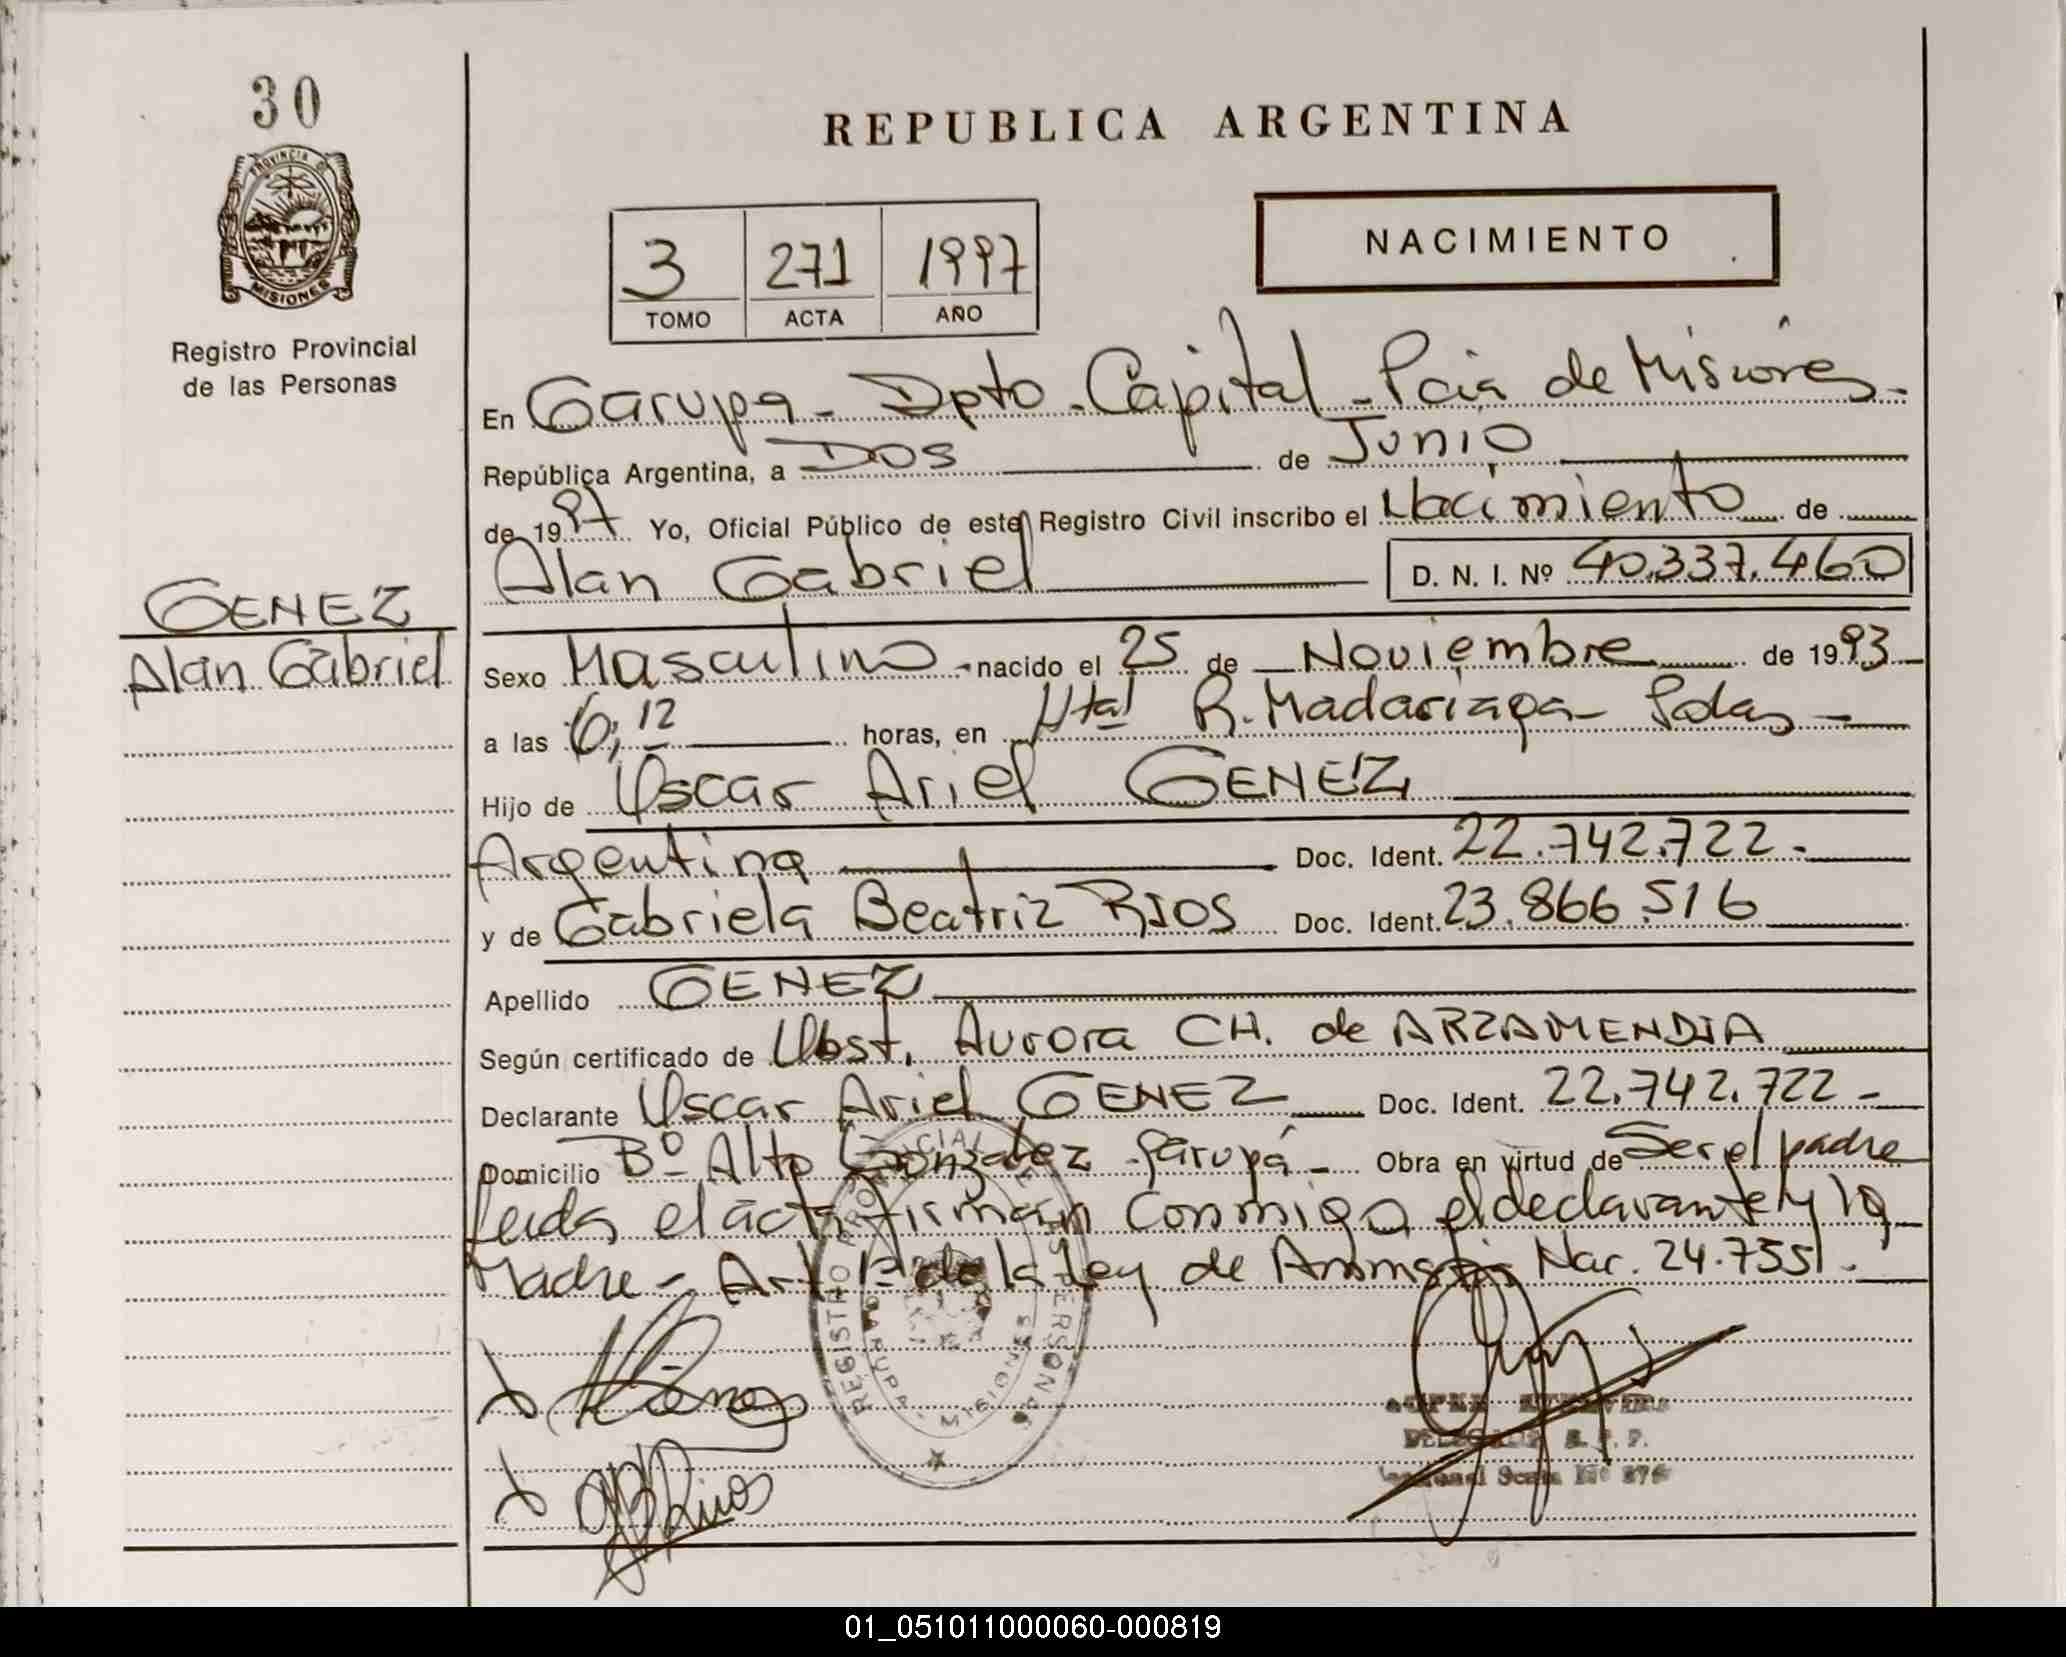 30
PROVINCIA DE
MISIONES
Registro Provincial
de las Personas
REPUBLICA ARGENTINA
3 271 1997
TOMO ACTA AÑO
NACIMIENTO
En Garupa - Dpto - Capital - Pcia de Misiones -
República Argentina, a DOS de Junio
de 1997 Yo, Oficial Público de este Registro Civil inscribo el Nacimiento de
Alan Gabriel D. N. I. Nº 40.337.460
GENEZ
Alan Gabriel
Sexo Masculino - nacido el 25 de Noviembre de 1993
a las 6,12 horas, en Htal R. Madariaga - Pdas -
Hijo de Oscar Ariel GENEZ
Argentina Doc. Ident. 22.742.722.-
y de Gabriela Beatriz RIOS Doc. Ident. 23.866.516
Apellido GENEZ
Según certificado de Obst. Aurora CH. de ARZAMENDIA
Declarante Oscar Ariel GENEZ Doc. Ident. 22.742.722 -
Domicilio Bº Alto Gonzalez - Garupá - Obra en virtud de Ser el padre
Leida el acta firman conmigo el declarante y la
Madre - Art 1º de la Ley de Nac. 24.755.-
REGISTRO PROVINCIAL PERSONAS
GARUPA - MISIONES
Rios
01_051011000060-000819